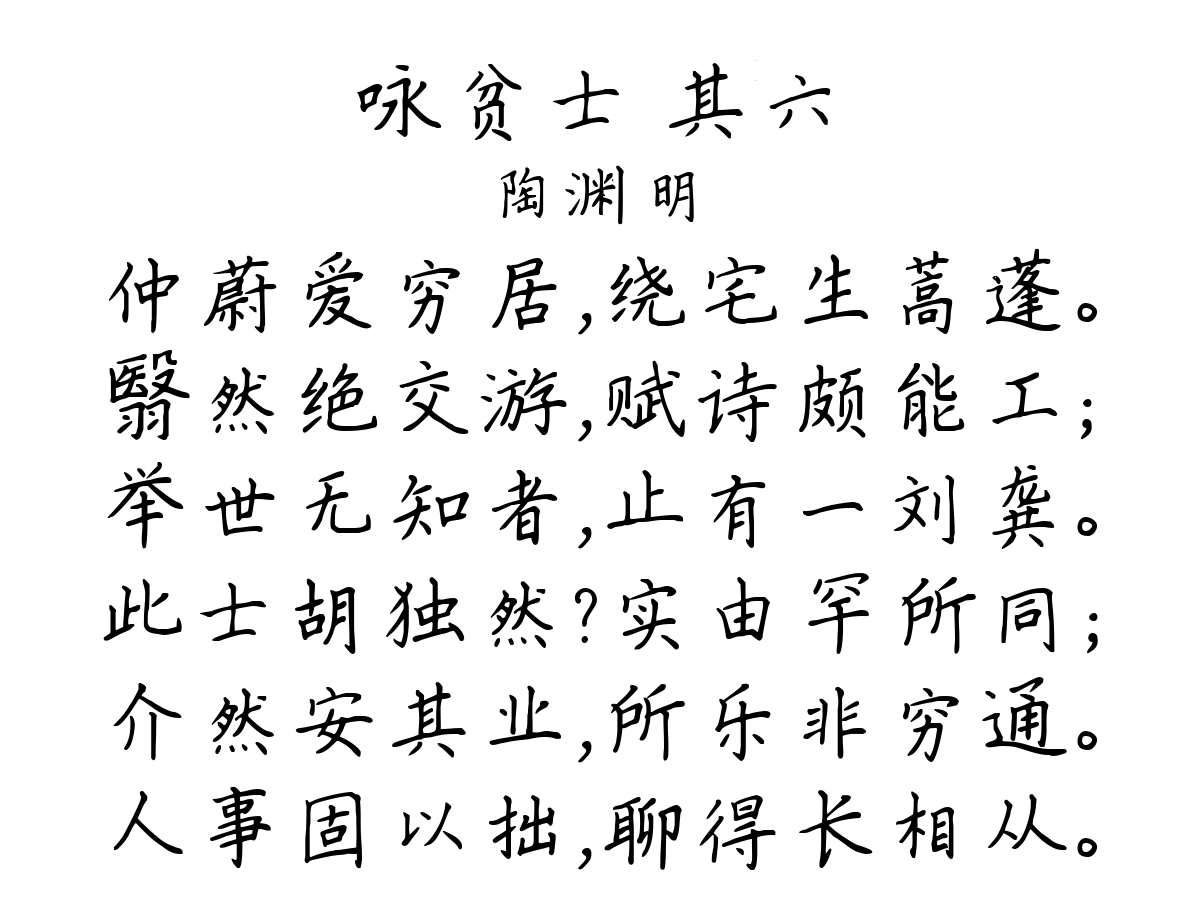 咏贫士 其六
陶渊明
仲蔚爱穷居,绕宅生蒿蓬。
翳然绝交游,赋诗颇能工;
举世无知者,止有一刘龚。
此士胡独然?实由罕所同;
介然安其业,所乐非穷通。
人事固以拙,聊得长相从。